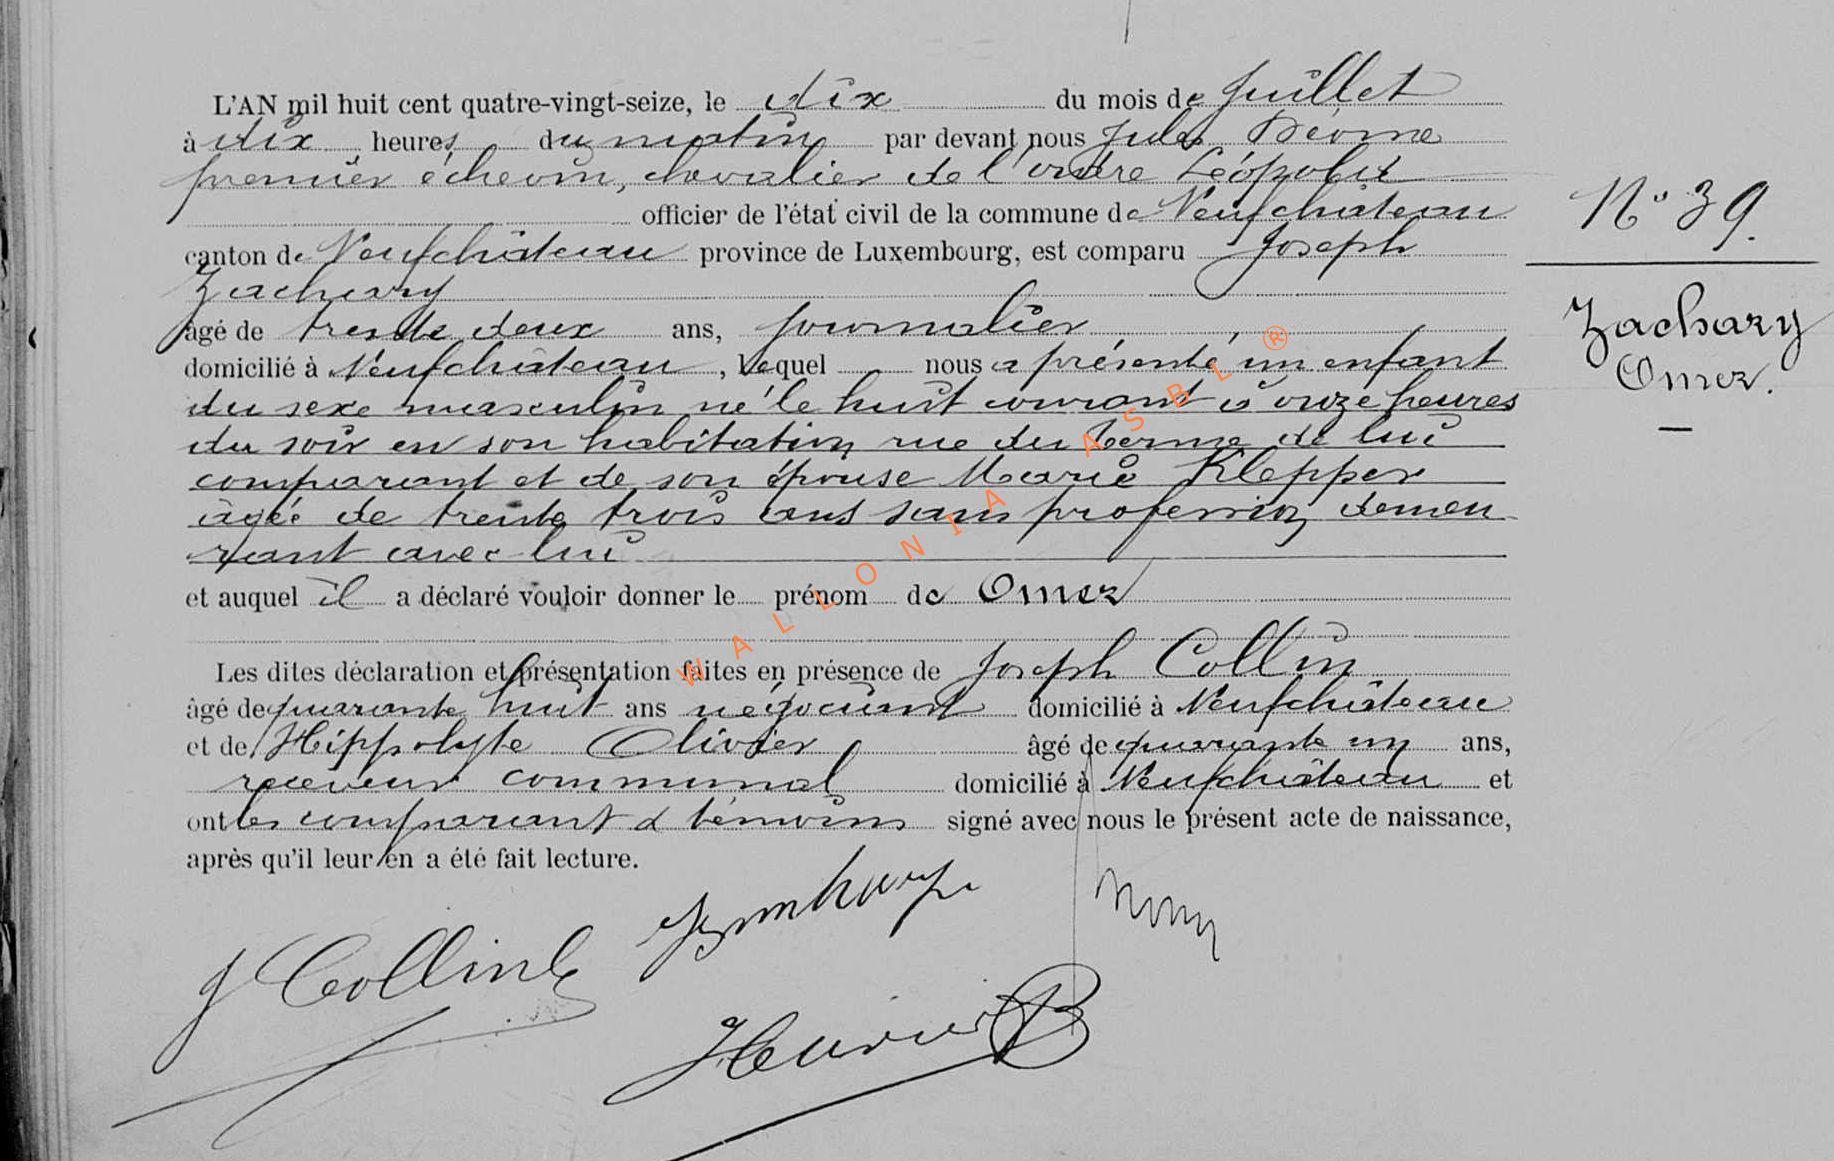 L'AN mil huit cent quatre-vingt-seize, le dix du mois de Juillet
à dix heures du matin par devant nous Jules
premier échevin, chevalier de l'ordre Léopold
officier de l'état civil de la commune de Neufchâteau
canton de Neufchâteau province de Luxembourg, est comparu Joseph
Zachary
âgé de trente deux ans, journalier
domicilié à Neufchâteau, lequel nous a présenté un enfant
du sexe masculin né le huit courant à onze heures
du soir en son habitation rue du Terme de lui
comparant et de son épouse Marie Klepper
âgée de trente trois ans sans profession demeu
rant avec lui
et auquel il a déclaré vouloir donner le prénom de Omer
Les dites déclaration et présentation faites en présence de Joseph Collin
âgé de quarante huit ans négociant domicilié à Neufchâteau
et de Hippolyte Olivier âgé de quarante un ans,
receveur communal domicilié à Neufchâteau et
ont les comparant & témoins signé avec nous le présent acte de naissance,
après qu'il leur en a été fait lecture.
J Collin
N° 39.
Zachary
Omer.
WALLONIA ASBL ®